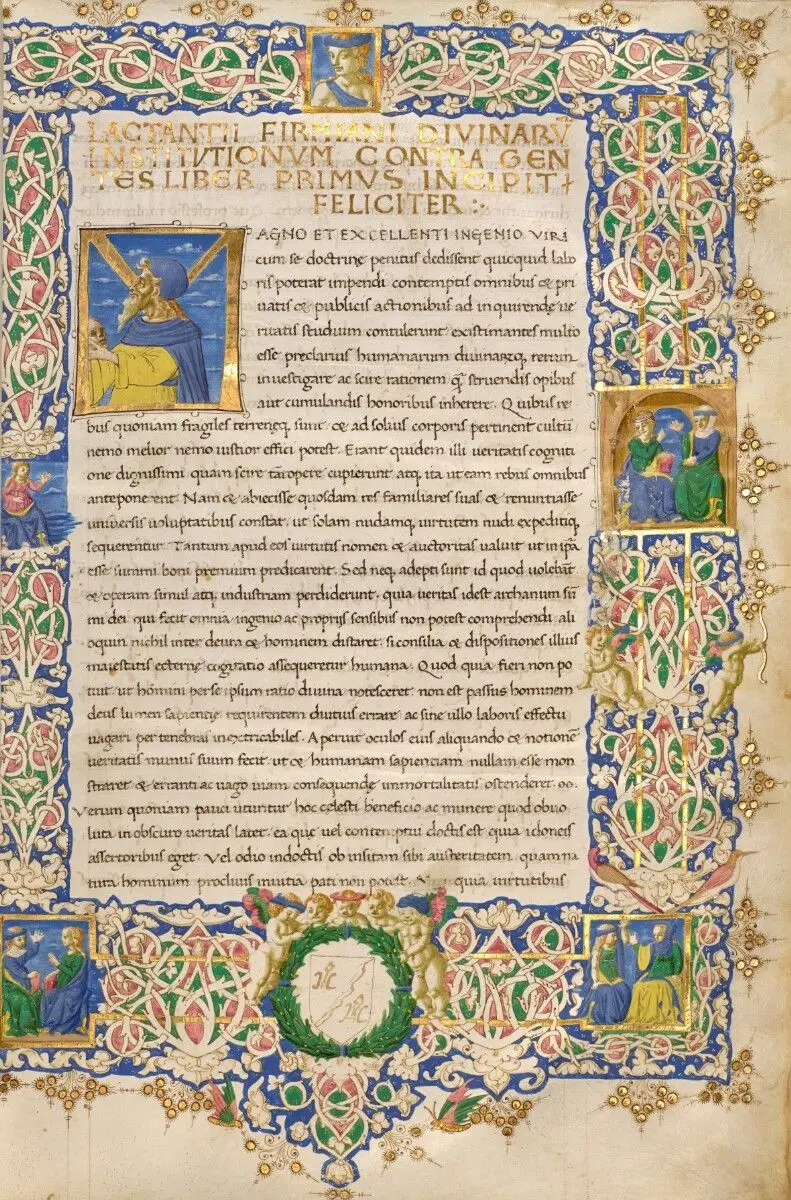 LACTANTII FIRMIANI DIVINARV̄
INSTITVTIONVM CONTRA GEN
TES LIBER PRIMVS INCIPIT
FELICITER :
AGNO ET EXCELLENTI INGENIO VIRI
cum se doctrine penitus dedissent quicquid labo
ris poterat impendi contemptis omnibus & pri
uatis & publicis actionibus ad inquirende ue
ritatis studium contulerunt existimantes multo
esse preclarius humanarum diuinarūq; rerum
inuestigare ac scire rationem q̄ struendis opibus
aut cumulandis honoribus inherere. Quibus re
bus quoniam fragiles terreneq; sunt & ad solius corporis pertinent cultū
nemo melior nemo iustior effici potest. Erant quidem illi ueritatis cogniti
one dignissimi quam scire tātopere cupierunt atq; ita ut eam rebus omnibus
anteponerent. Nam & abiecisse quosdam res familiares suas & renuntiasse
uniuersis uoluptatibus constat. ut solam nudamq; uirtutem nudi expeditiq;
sequerentur. Tantum apud eos uirtutis nomen & auctoritas ualuit ut in ip̄a
esse summi boni premium predicarent. Sed neq; adepti sunt id quod uolebāt
& operam simul atq; industriam perdiderunt. quia ueritas idest archanum sū
mi dei qui fecit omnia ingenio ac proprijs sensibus non potest comprehendi. ali
oquin nichil inter deum & hominem distaret. si consilia & dispositiones illius
maiestatis eterne cogitatio assequeretur humana. Quod quia fieri non po
tuit ut homini per se ipsum ratio diuina notesceret non est passus hominem
deus lumen sapiencie requirentem diutius errare ac sine ullo laboris effectu
uagari per tenebras inextricabiles. Aperuit oculos eius aliquando & notionē
ueritatis munus suum fecit. ut & humanam sapienciam nullam esse mon
straret & erranti ac uago uiam consequende immortalitatis ostenderet.
Verum quoniam pauci utuntur hoc celesti beneficio ac munere quod obuo
luta in obscuro ueritas latet. ea que uel contemptui doctis est quia idoneis
assertoribus eget. Vel odio indoctis ob insitam sibi austeritatem. quam na
tura hominum procliuis in uitia pati non potest. quia uirtutibus